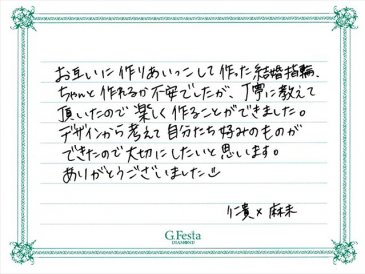 お互いに作りあいっこして作った結婚指輪、
ちゃんと作れるか不安でしたが、丁寧に教えて
頂いたので楽しく作ることができました。
デザインから考えて自分たち好みのものが
できたので大切にしたいと思います。
ありがとうございました
仁貴×麻未
G.Festa
DIAMOND